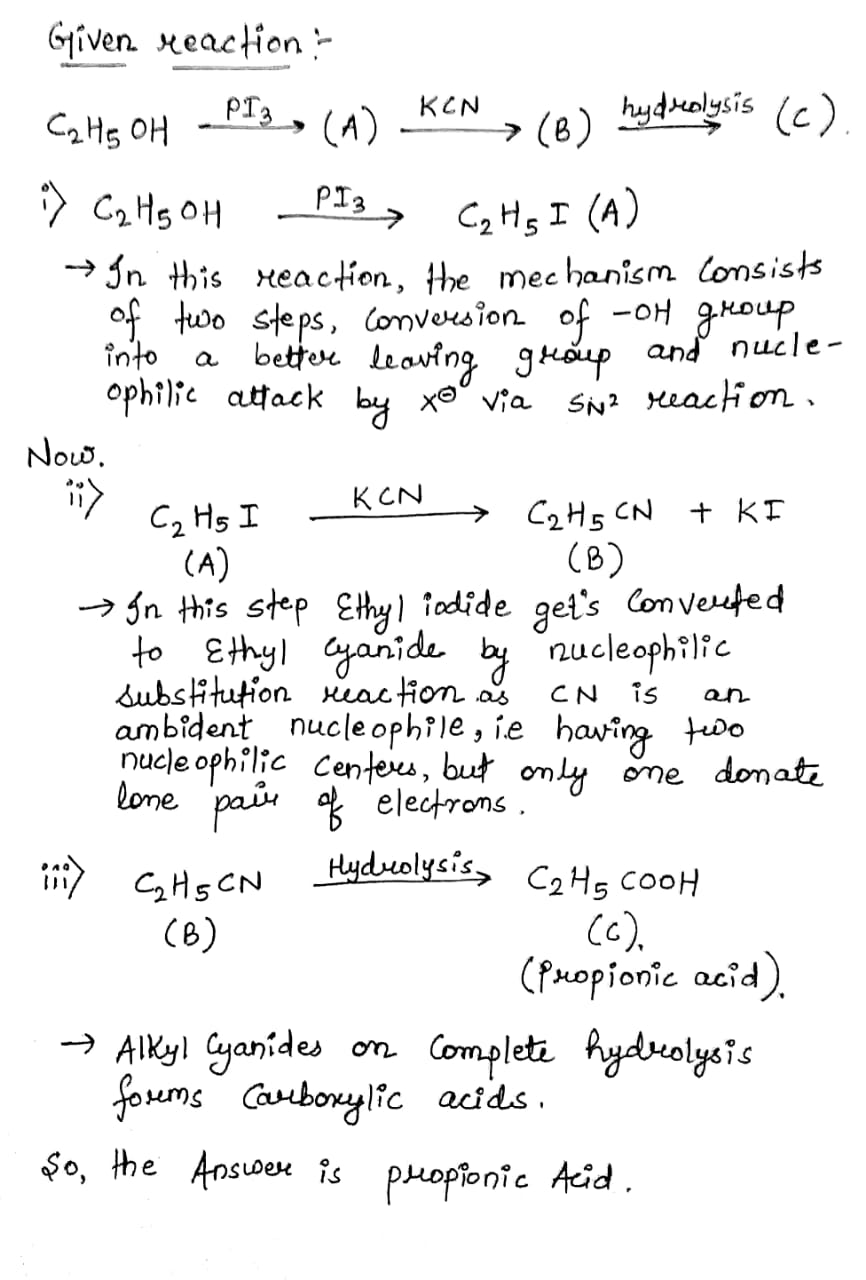 Given reaction :-
C₂H₅OH —PI₃→ (A) —KCN→ (B) —hydrolysis→ (C).
i) C₂H₅OH —PI₃→ C₂H₅I (A)
→ In this reaction, the mechanism Consists
of two steps, Conversion of -OH group
into a better leaving group and nucle-
ophilic attack by X⊖ via SN² reaction.
Now.
ii) C₂H₅I —KCN→ C₂H₅CN + KI
(A) (B)
→ In this step Ethyl iodide get's Converted
to Ethyl Cyanide by nucleophilic
substitution reaction as CN is an
ambident nucleophile, i.e having two
nucleophilic Centers, but only one donate
lone pair of electrons.
iii) C₂H₅CN —Hydrolysis→ C₂H₅COOH
(B) (C).
(Propionic acid).
→ Alkyl Cyanides on Complete hydrolysis
forms Carboxylic acids.
So, the Answer is propionic Acid.